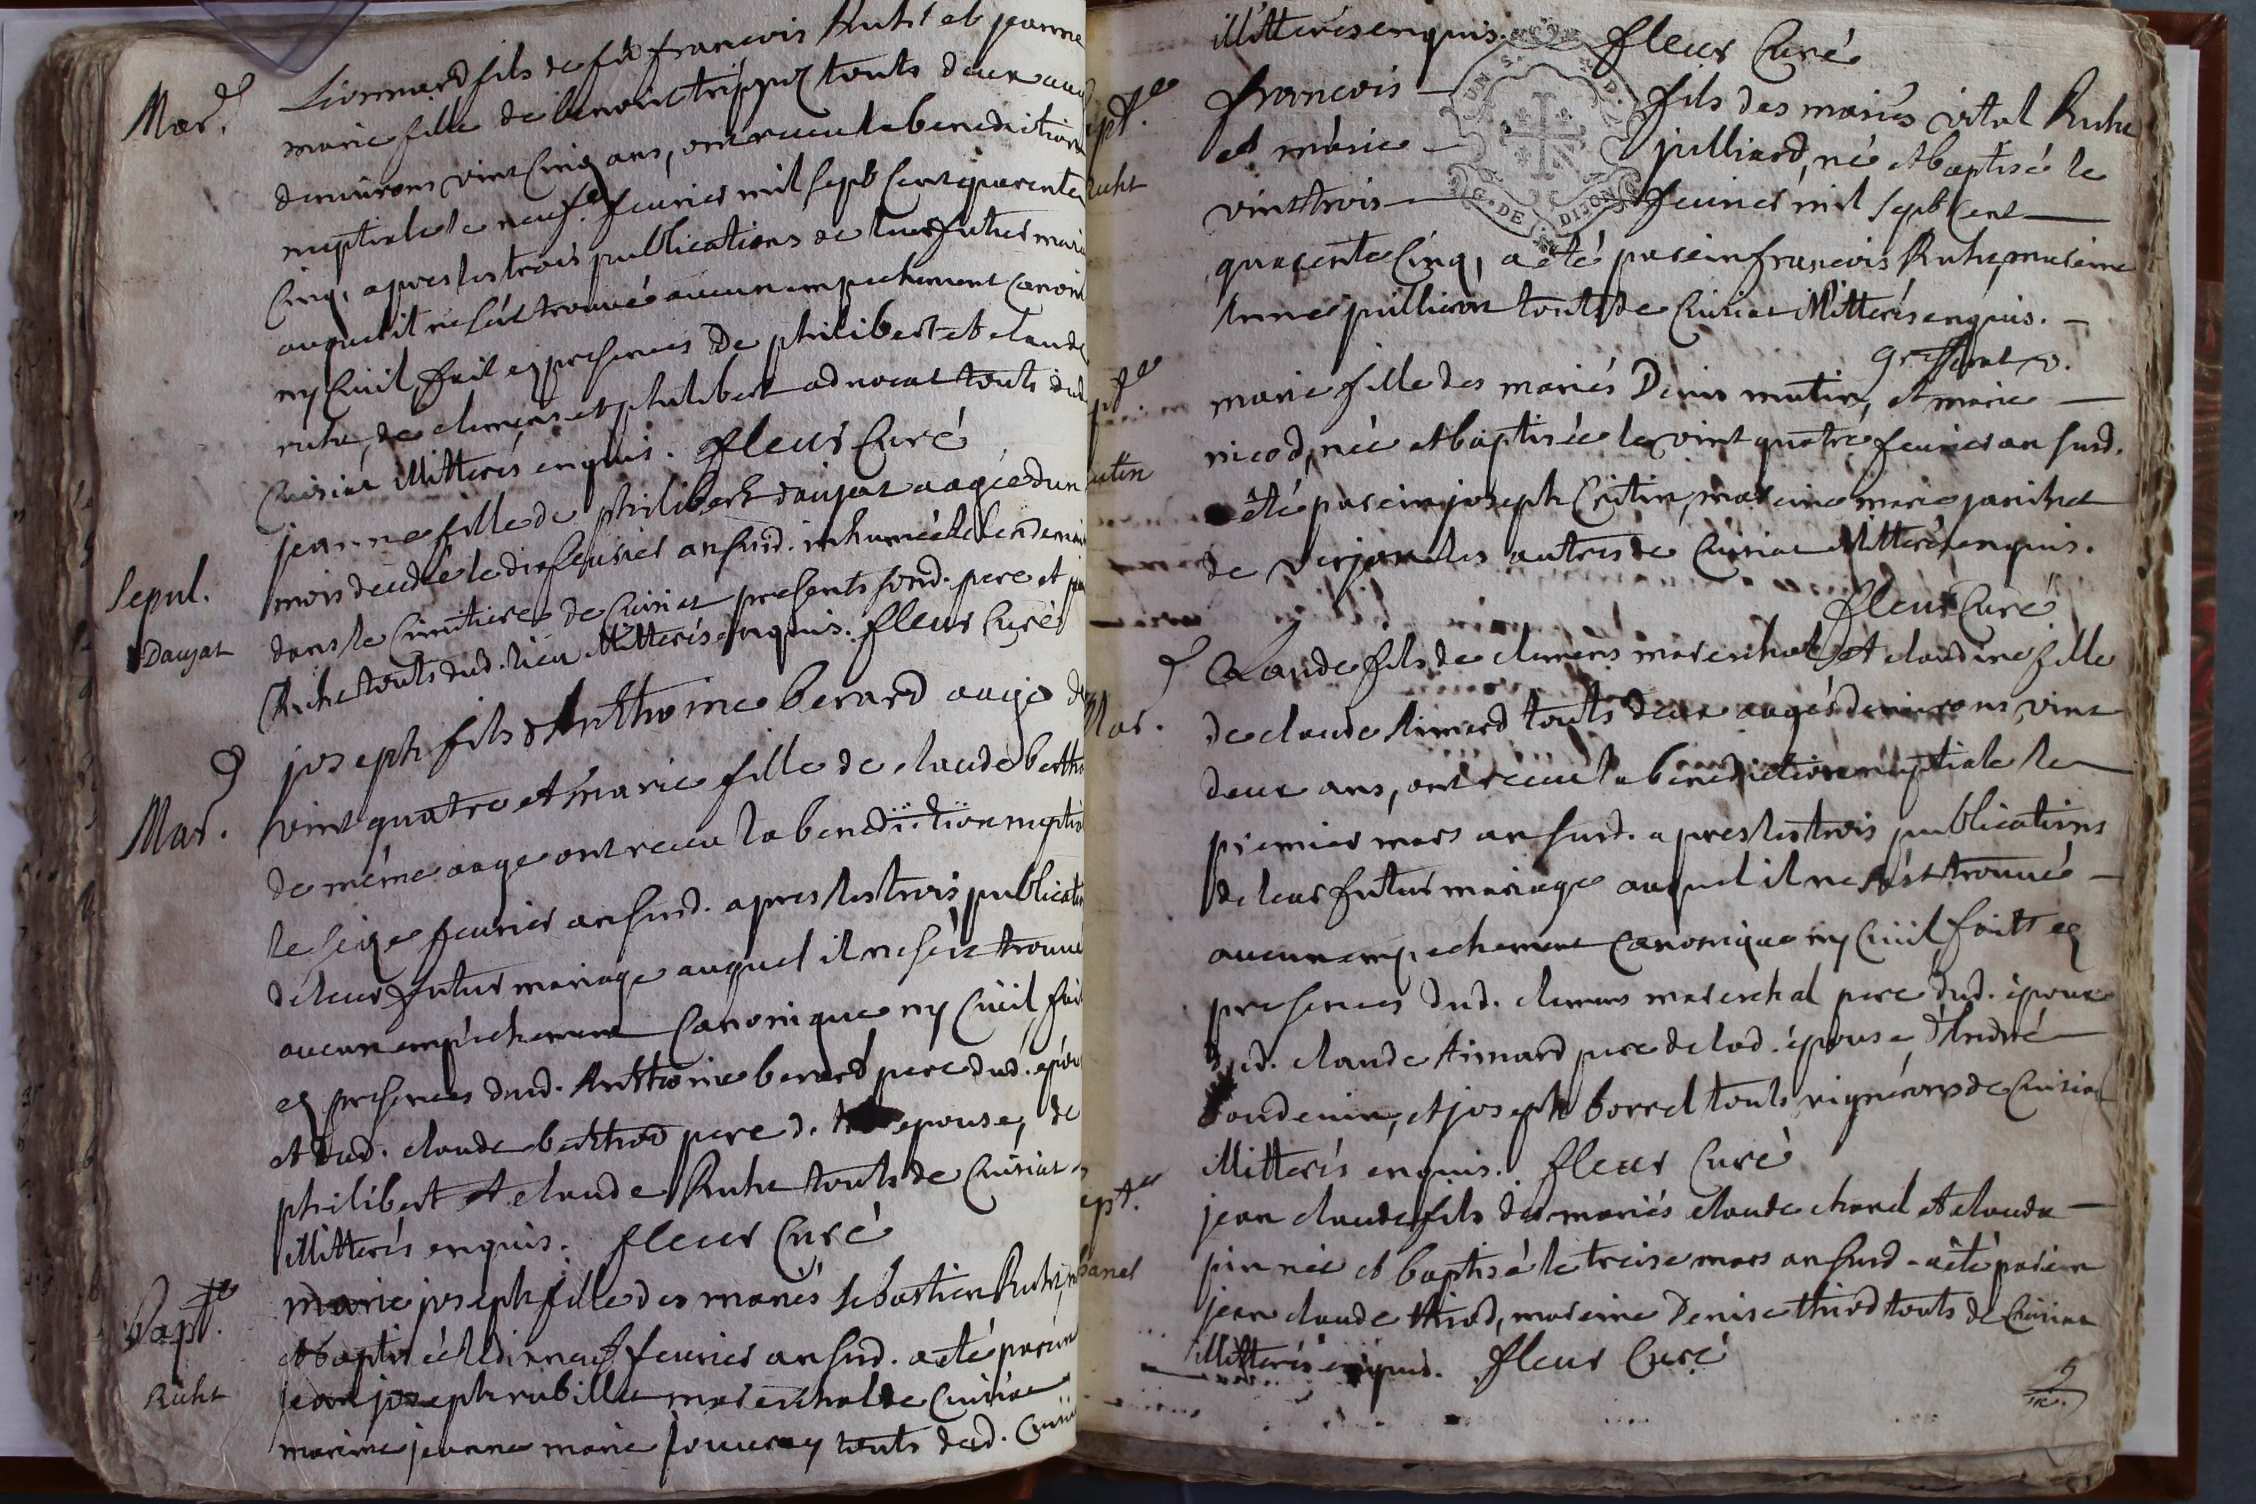 Mar.
Lionnard fils de fû francois Ruht et jeanne
marie fille de benoict trippoz touts deux aag
denvirons vint Cinq ans, ont receu la benediction
nuptiale le neuf feurier mil sept Cent quarente
Cinq, apres les trois publications de leur futur maria
auquel il ne s'est trouué aucun empechement Canoni
ny Ciuil, fait eg presences de philibert et claude
ruht, de clemens et philibert aduocat touts dud
Cuisiat illitterés enquis. fleur Curé
Sepul.
Daujat
jeanne fille de philibert daujat aagée d'un
mois decedée le dix feurier an susd. inhumée le lendemain
dans le Cimitiere de Cuisiat presents sond. pere et
Ruht touts dud. lieu illitterés enquis. fleur Curé
Mar.
joseph fils d'Anthoine berard aagé de
vint quatre et marie fille de claude bertho
de même aage ont receu la benediction nuptia
le seize feurier an susd. apres les trois publicati
de leur futur mariage auquel il ne s'est trouué
aucun empechement Canonique ny Ciuil, fait
eg presences dud. Anthoine berard pere dud. epou
et dud. claude berthod pere d. epouse, de
philibert et claude Ruht touts de Cuisiat
illitterés enquis. fleur Curé
Bapt.
Ruht
marie joseph fille des mariés sebastien Ruht,
et baptisée le dix neuf feurier an susd. a eté parein
jean joseph rubillet mareschal de Cuisiat
mareine jeanne marie touts dud. Cuisi
illitterés enquis. fleur Curé
Ruht
francois fils des mariés vital Ruht
et marie julliard, né et baptisé le
vint trois feurier mil sept Cent
quarente Cinq, a eté parein francois Ruht, mareine
Anne touts de Cuisiat illitterés enquis.
marie fille des mariés Denis mutin, et marie
nicod, née et baptisée le vint quatre feurier an susd.
a été parein joseph Critin, mareine marie
de Verjon les autres de Cuisiat illitterés enquis.
fleur Curé
Mar.
Claude fils de clemens mareschal et claudine fille
de claude Aimard touts deux aagés denvirons vint
deux ans, ont receu la benediction nuptiale le
premier mars an susd. apres les trois publications
de leur futur mariage auquel il ne s'est trouué
aucun empechement canonique ny Ciuil, faitt eg
presences dud. clemens mareschal pere dud. époux
dud. claude Aimard pere de lad. épouse, d'André
et joseph borrel touts vignerons de Cuisiat
illitterés enquis. fleur Curé
jean claude fils des mariés claude chanel et clauda
pin né et baptisé le treise mars an susd. a eté parein
jean claude third, mareine Denise third touts de Cuisiat
illitterés enquis. fleur Curé
5